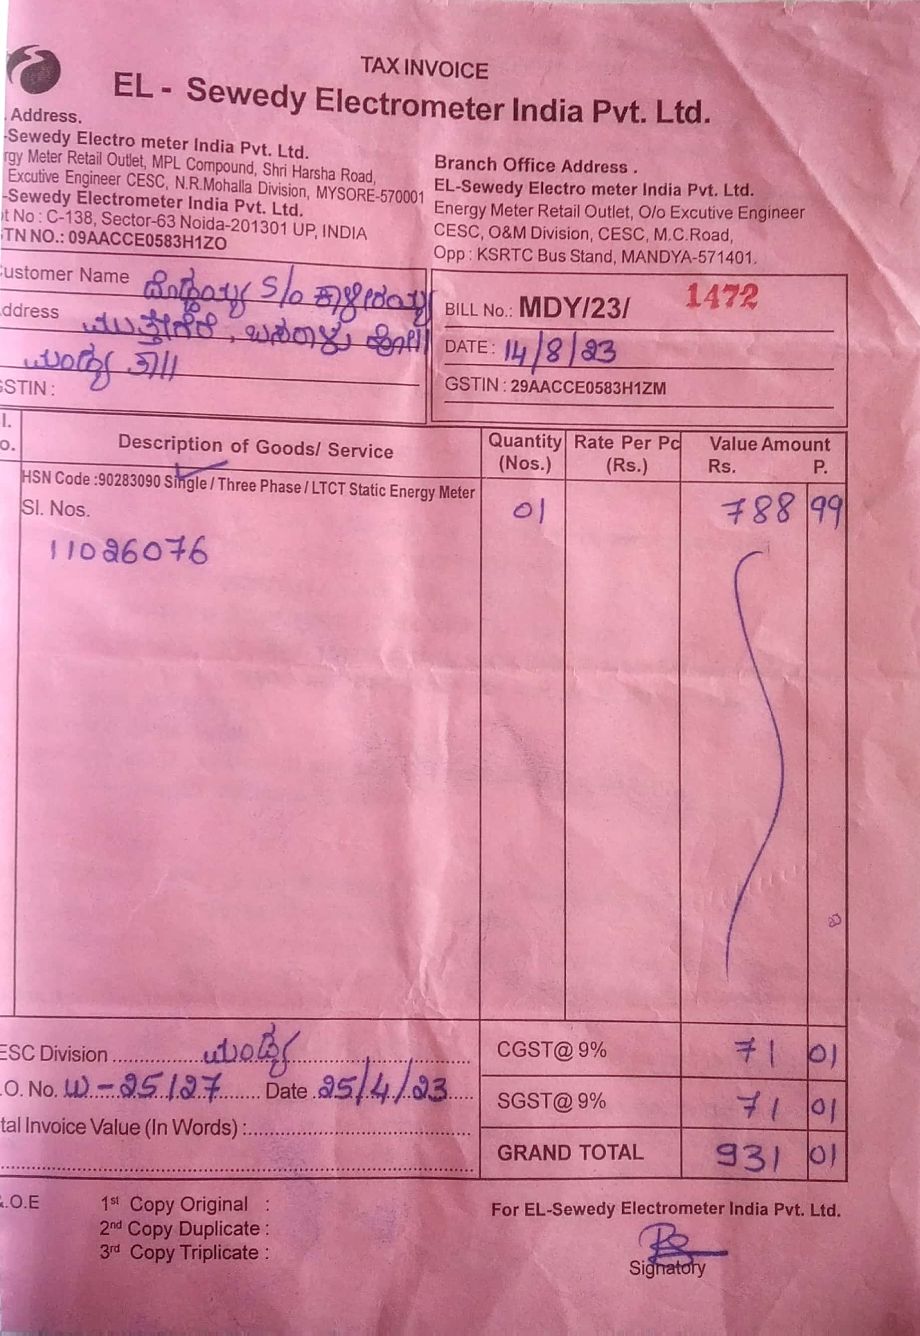 TAX INVOICE
EL - Sewedy Electrometer India Pvt. Ltd.
Address.
-Sewedy Electro meter India Pvt. Ltd.
rgy Meter Retail Outlet, MPL Compound, Shri Harsha Road,
Excutive Engineer CESC, N.R.Mohalla Division, MYSORE-570001
-Sewedy Electrometer India Pvt. Ltd.
t No : C-138, Sector-63 Noida-201301 UP, INDIA
TN NO.: 09AACCE0583H1ZO
Branch Office Address .
EL-Sewedy Electro meter India Pvt. Ltd.
Energy Meter Retail Outlet, O/o Excutive Engineer
CESC, O&M Division, CESC, M.C.Road,
Opp : KSRTC Bus Stand, MANDYA-571401.
ustomer Name S/o
ddress
ಮಂಡ್ಯ
GSTIN :
BILL No.: MDY/23/ 1472
DATE : 14/8/23
GSTIN : 29AACCE0583H1ZM
l. o. Description of Goods/ Service Quantity (Nos.) Rate Per Pc (Rs.) Value Amount Rs. P.
HSN Code :90283090 Single / Three Phase / LTCT Static Energy Meter
Sl. Nos. 01 788 99
11026076
ESC Division ಮಂಡ್ಯ
.O. No. W-25/27 Date 25/4/23
tal Invoice Value (In Words) :
CGST@ 9% 71 01
SGST@ 9% 71 01
GRAND TOTAL 931 01
.O.E
1st Copy Original :
2nd Copy Duplicate :
3rd Copy Triplicate :
For EL-Sewedy Electrometer India Pvt. Ltd.
Signatory